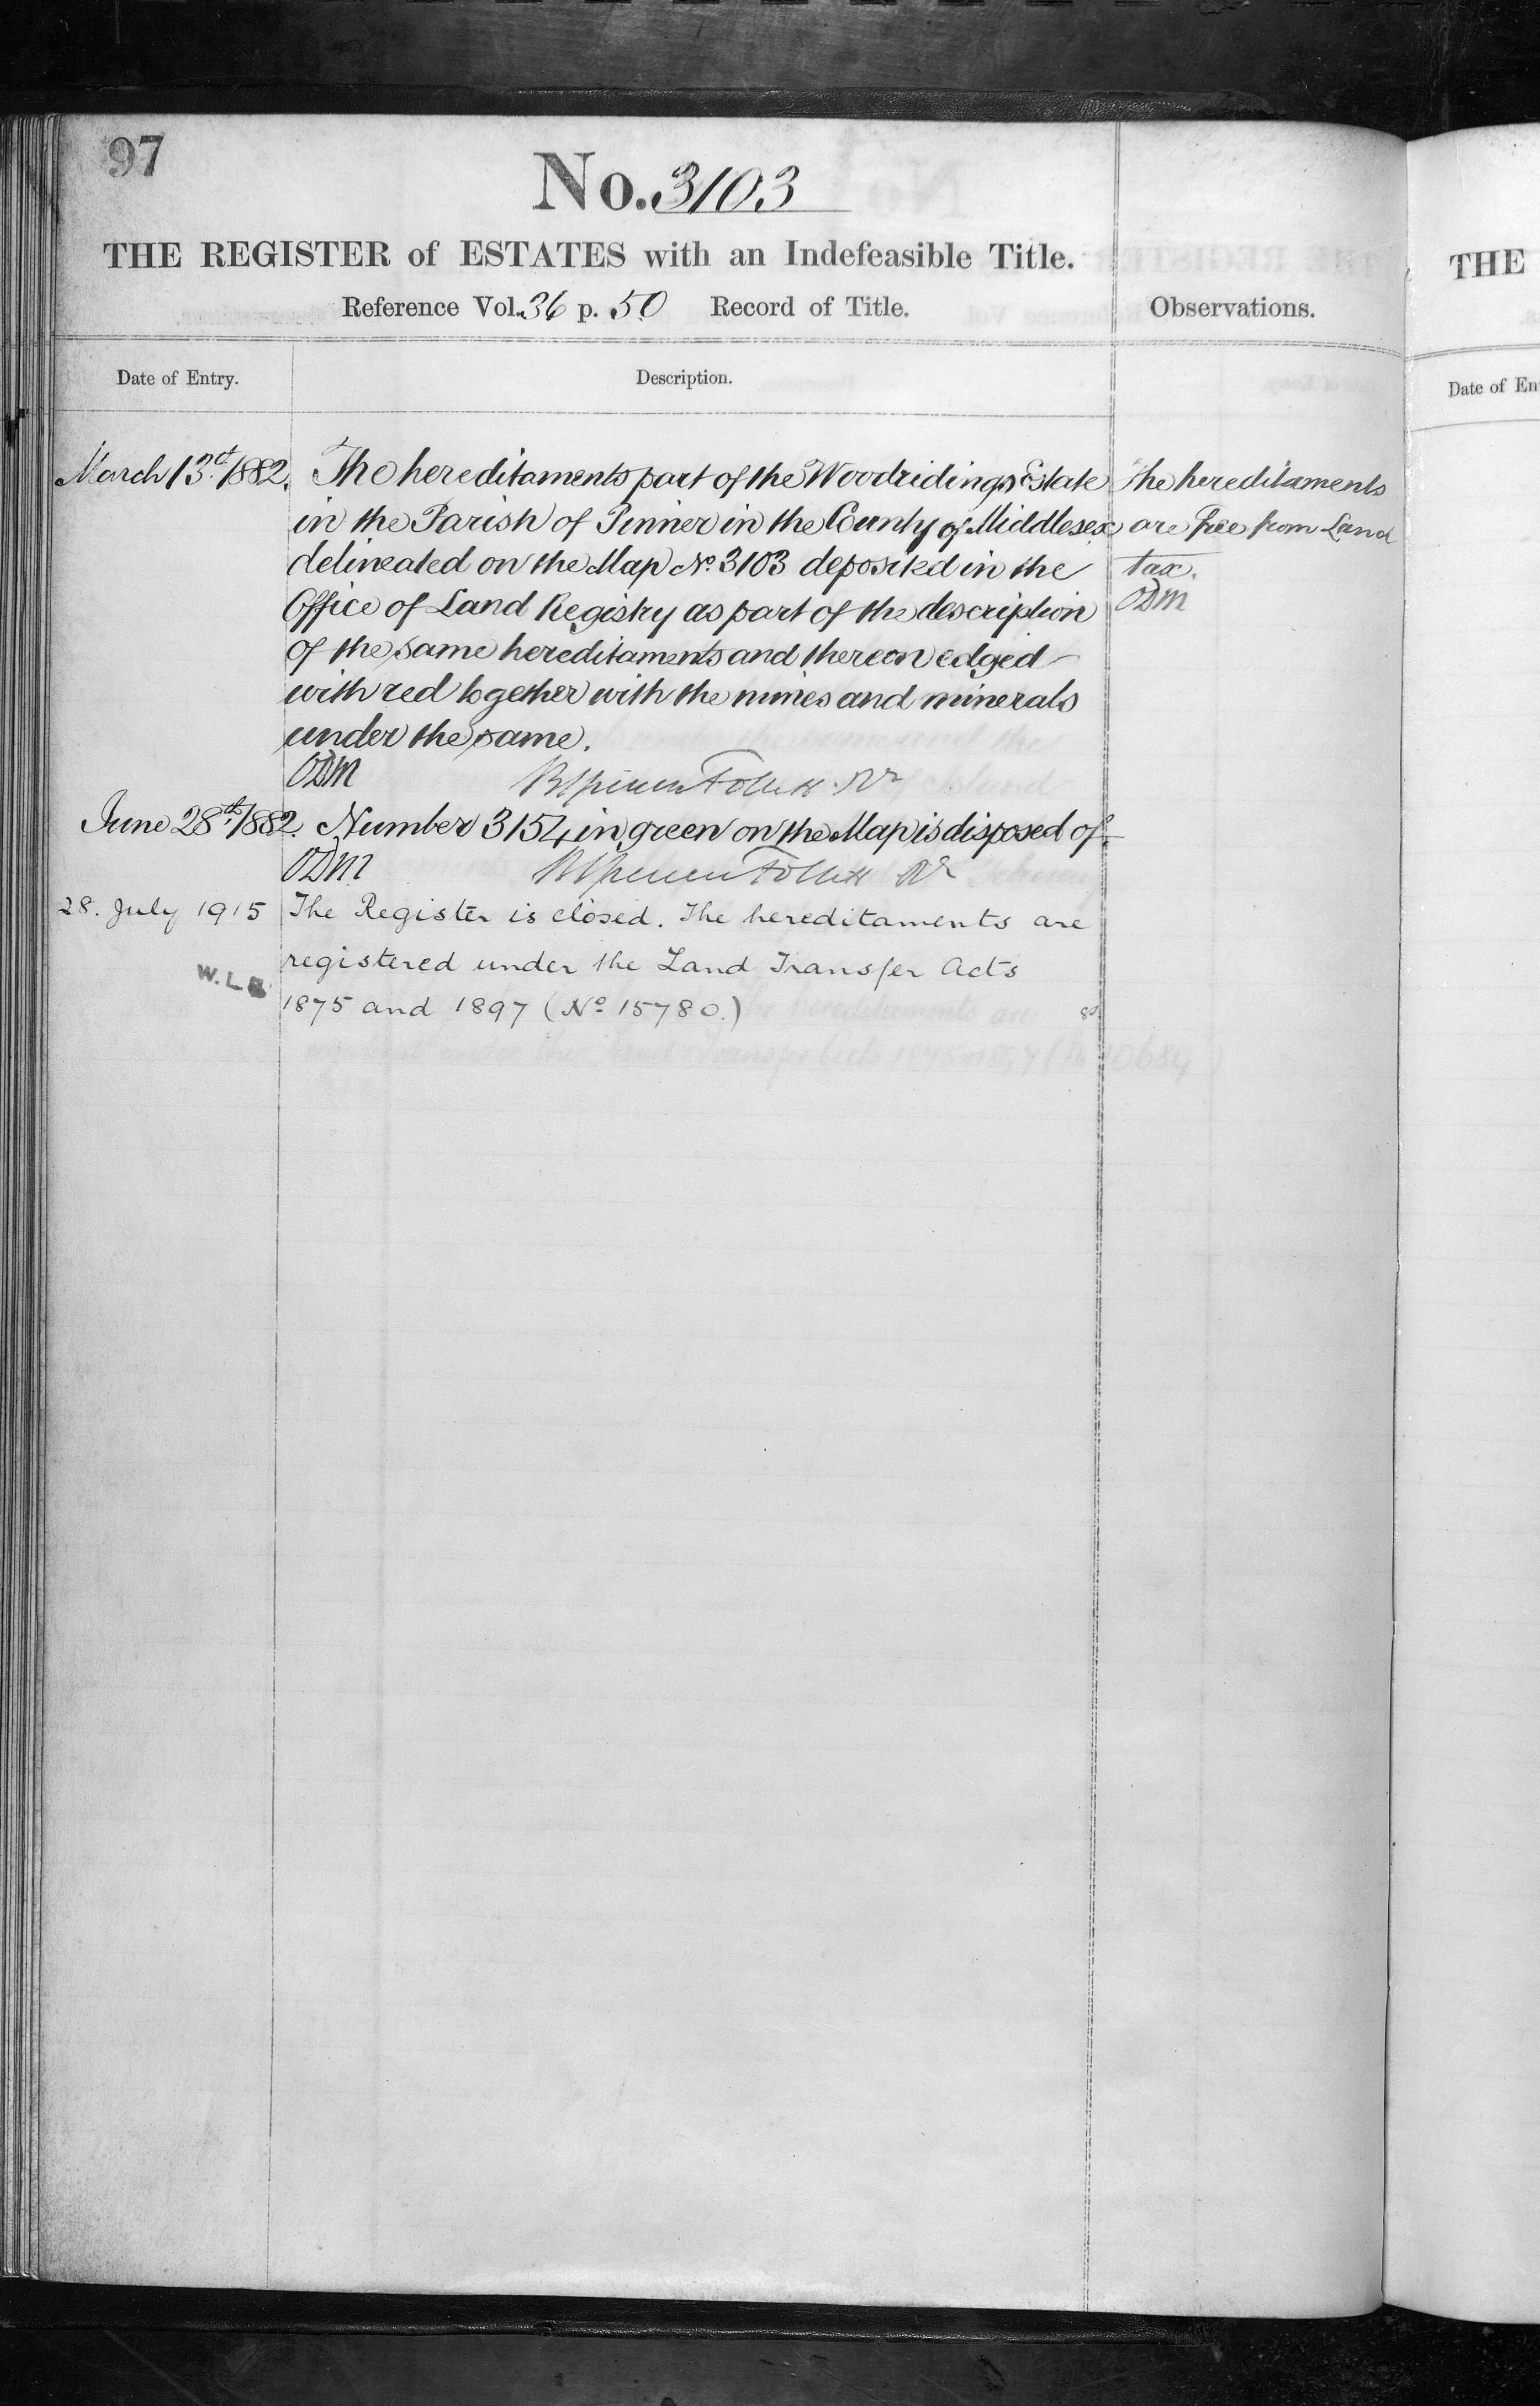 97
No. 3103
THE REGISTER of ESTATES with an Indefeasible Title.
Reference Vol. 36 p. 50 Record of Title.
Observations.
Date of Entry.
Description.
March 13th 1882. The hereditaments part of the Woodridings Estate
in the Parish of Pinner in the County of Middlesex
delineated on the Map No. 3103 deposited in the
Office of Land Registry as part of the description
of the same hereditaments and thereon edged
with red together with the mines and minerals
under the same.
ODM
The hereditaments
are free from Land
tax.
ODM
June 28th 1882. Number 3154 in green on the Map is disposed of.
ODM
28. July 1915 The Register is closed. The hereditaments are
registered under the Land Transfer Acts
1875 and 1897 (No 15780.)
W.L.B
THE
Date of En